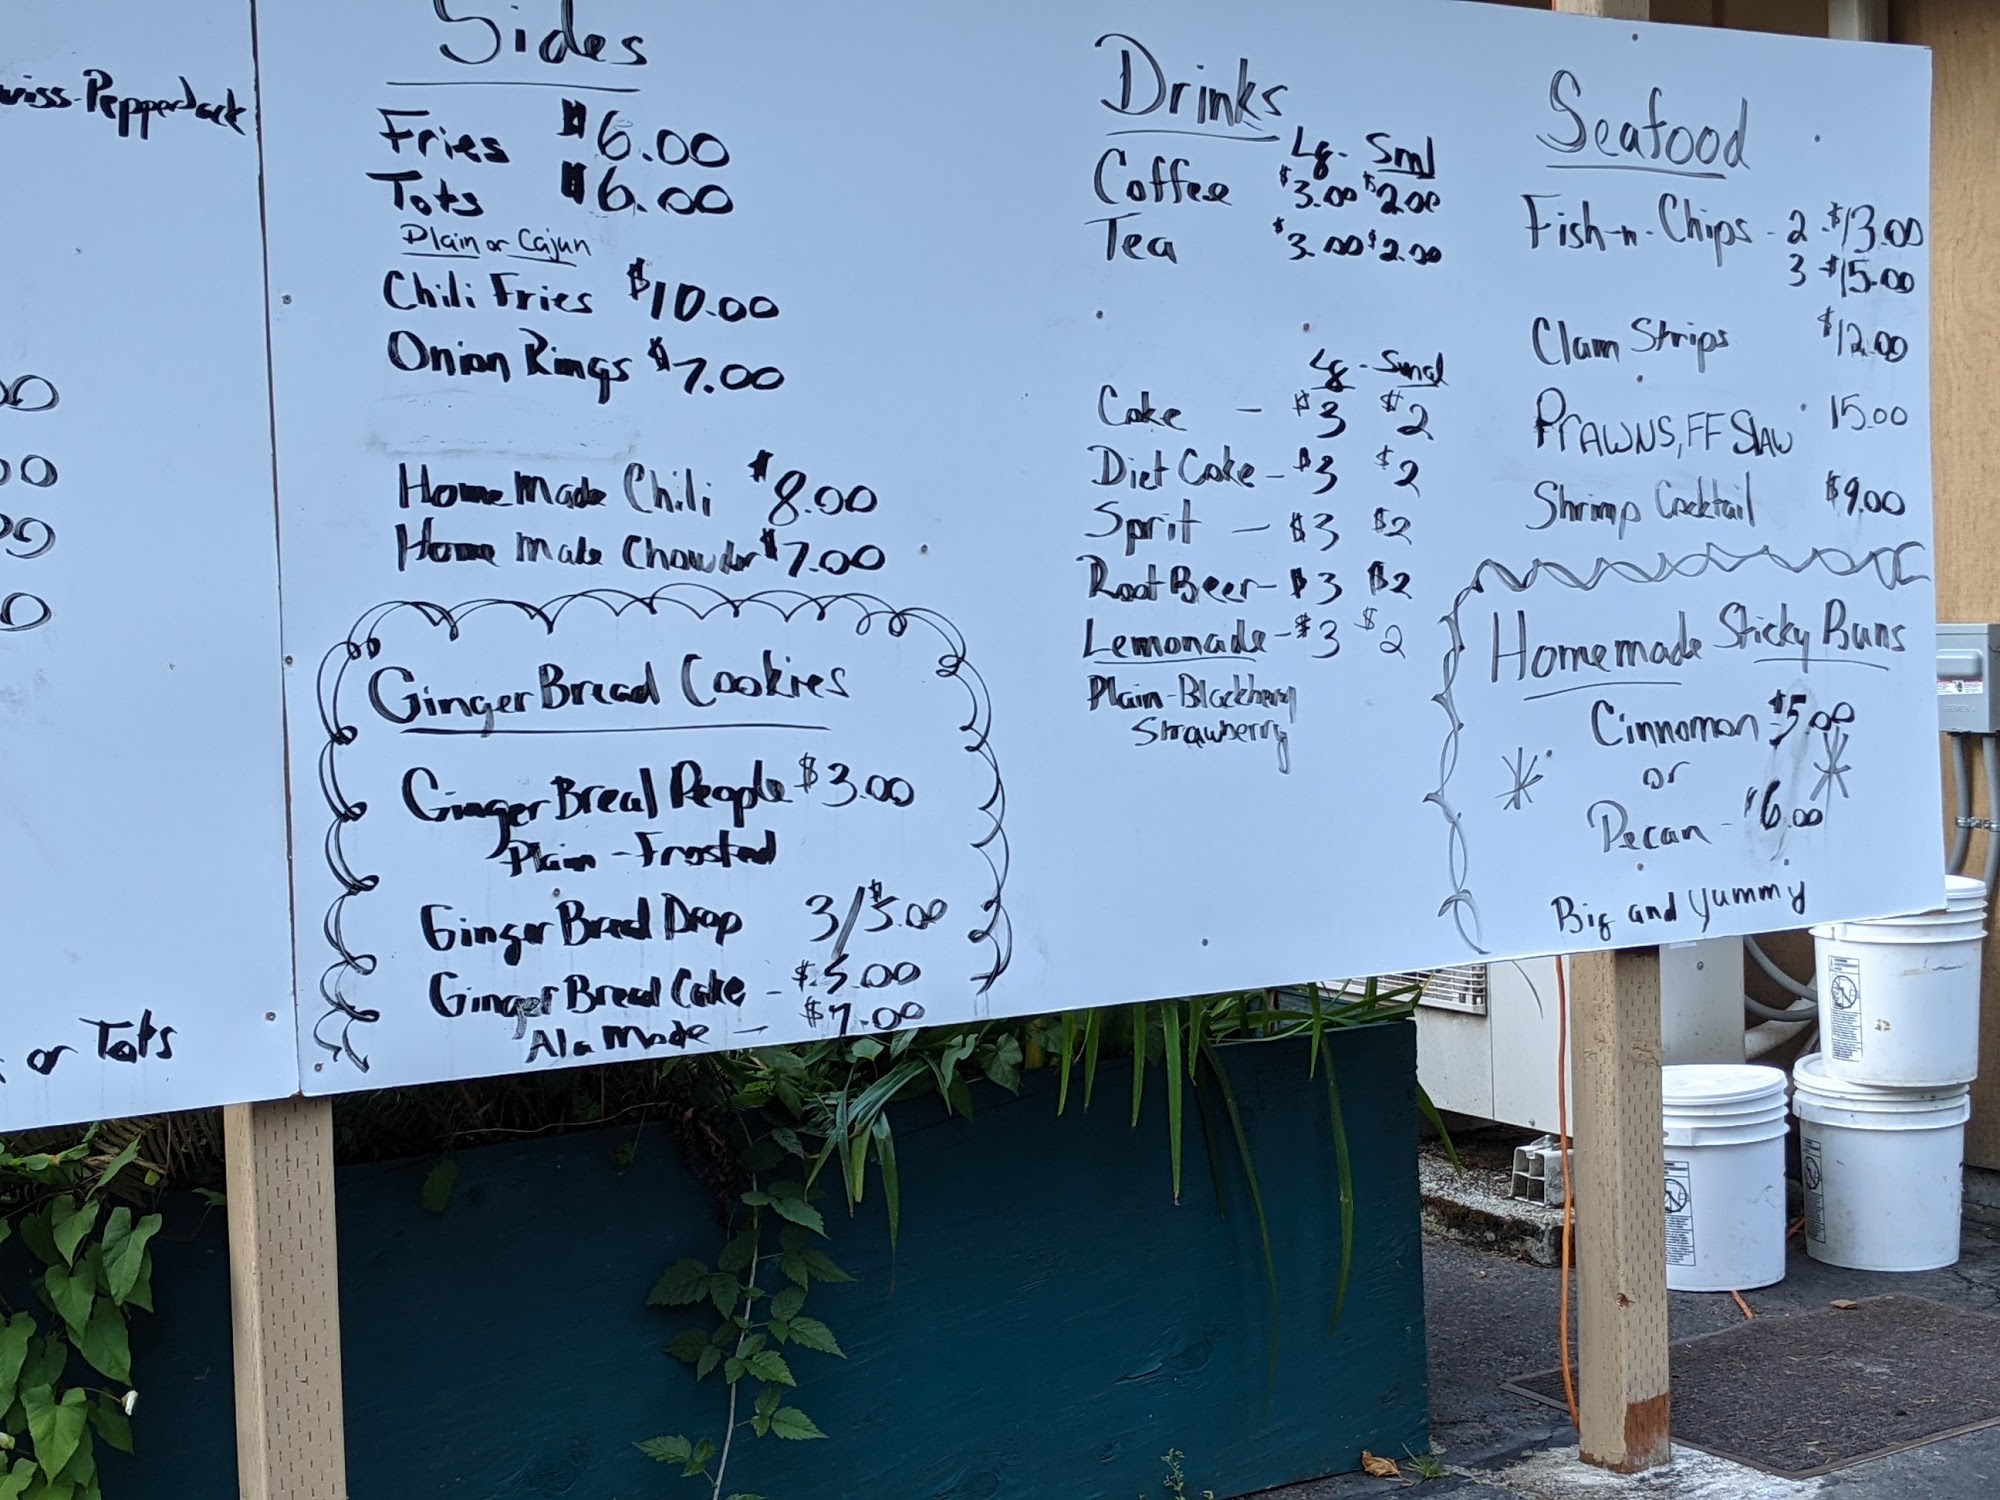 Pepperjack
or Tots
Sides
Fries $6.00
Tots $6.00
Plain or Cajun
Chili Fries $10.00
Onion Rings $7.00
Home Made Chili $8.00
Home Made Chowder $7.00
Ginger Bread Cookies
Ginger Bread People $3.00
Plain - Frosted
Ginger Bread Drop 3/$5.00
Ginger Bread Cake - $5.00
Ala Mode - $7.00
Drinks
Lg. Sml
Coffee $3.00 $2.00
Tea $3.00 $2.00
Lg - Smal
Coke - $3 $2
Diet Coke - $3 $2
Sprit - $3 $2
Root Beer - $3 $2
Lemonade - $3 $2
Plain - Blackberry
Strawberry
Seafood
Fish-n-Chips - 2 $13.00
3 $15.00
Clam Strips $12.00
PRAWNS, FF SLAW 15.00
Shrimp Cocktail $9.00
Homemade Sticky Buns
Cinnamon $5.00
or
Pecan - $6.00
Big and Yummy